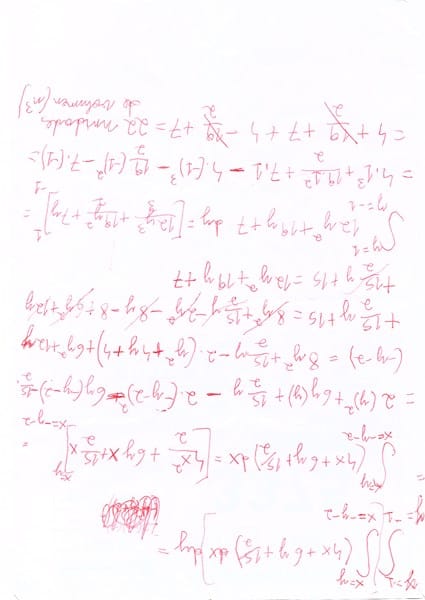 ∫_{y=-1}^{y=1} [∫_{x=-y-2}^{x=y} (4x+6y+15/2) dx] dy =
= ∫_{x=-y-2}^{x=y} (4x+6y+15/2) dx = [4x²/2 + 6yx + 15/2 x]_{x=-y-2}^{x=y} =
= 2(y)²+6y(y)+15/2 y - 2·(-y-2)² - 6y(-y-2) - 15/2·
(-y-2) = 8y² + 15/2 y - 2·(y²+4y+4)+6y²+12y
+15/2 y+15 = 8y²+15/2 y-2y²-8y-8+6y²+12y
+15/2 y+15 = 12y²+19y+7
∫_{y=-1}^{y=1} 12y²+19y+7 dy = [12y³/3 + 19y²/2 + 7y]_{-1}^{1} =
= 4·1³ + 19·1²/2 + 7·1 - 4·(-1)³ - 19/2(-1)² - 7·(-1) =
= 4 + 19/2 + 7 + 4 - 19/2 + 7 = 22 unidades
de volumen (u³)